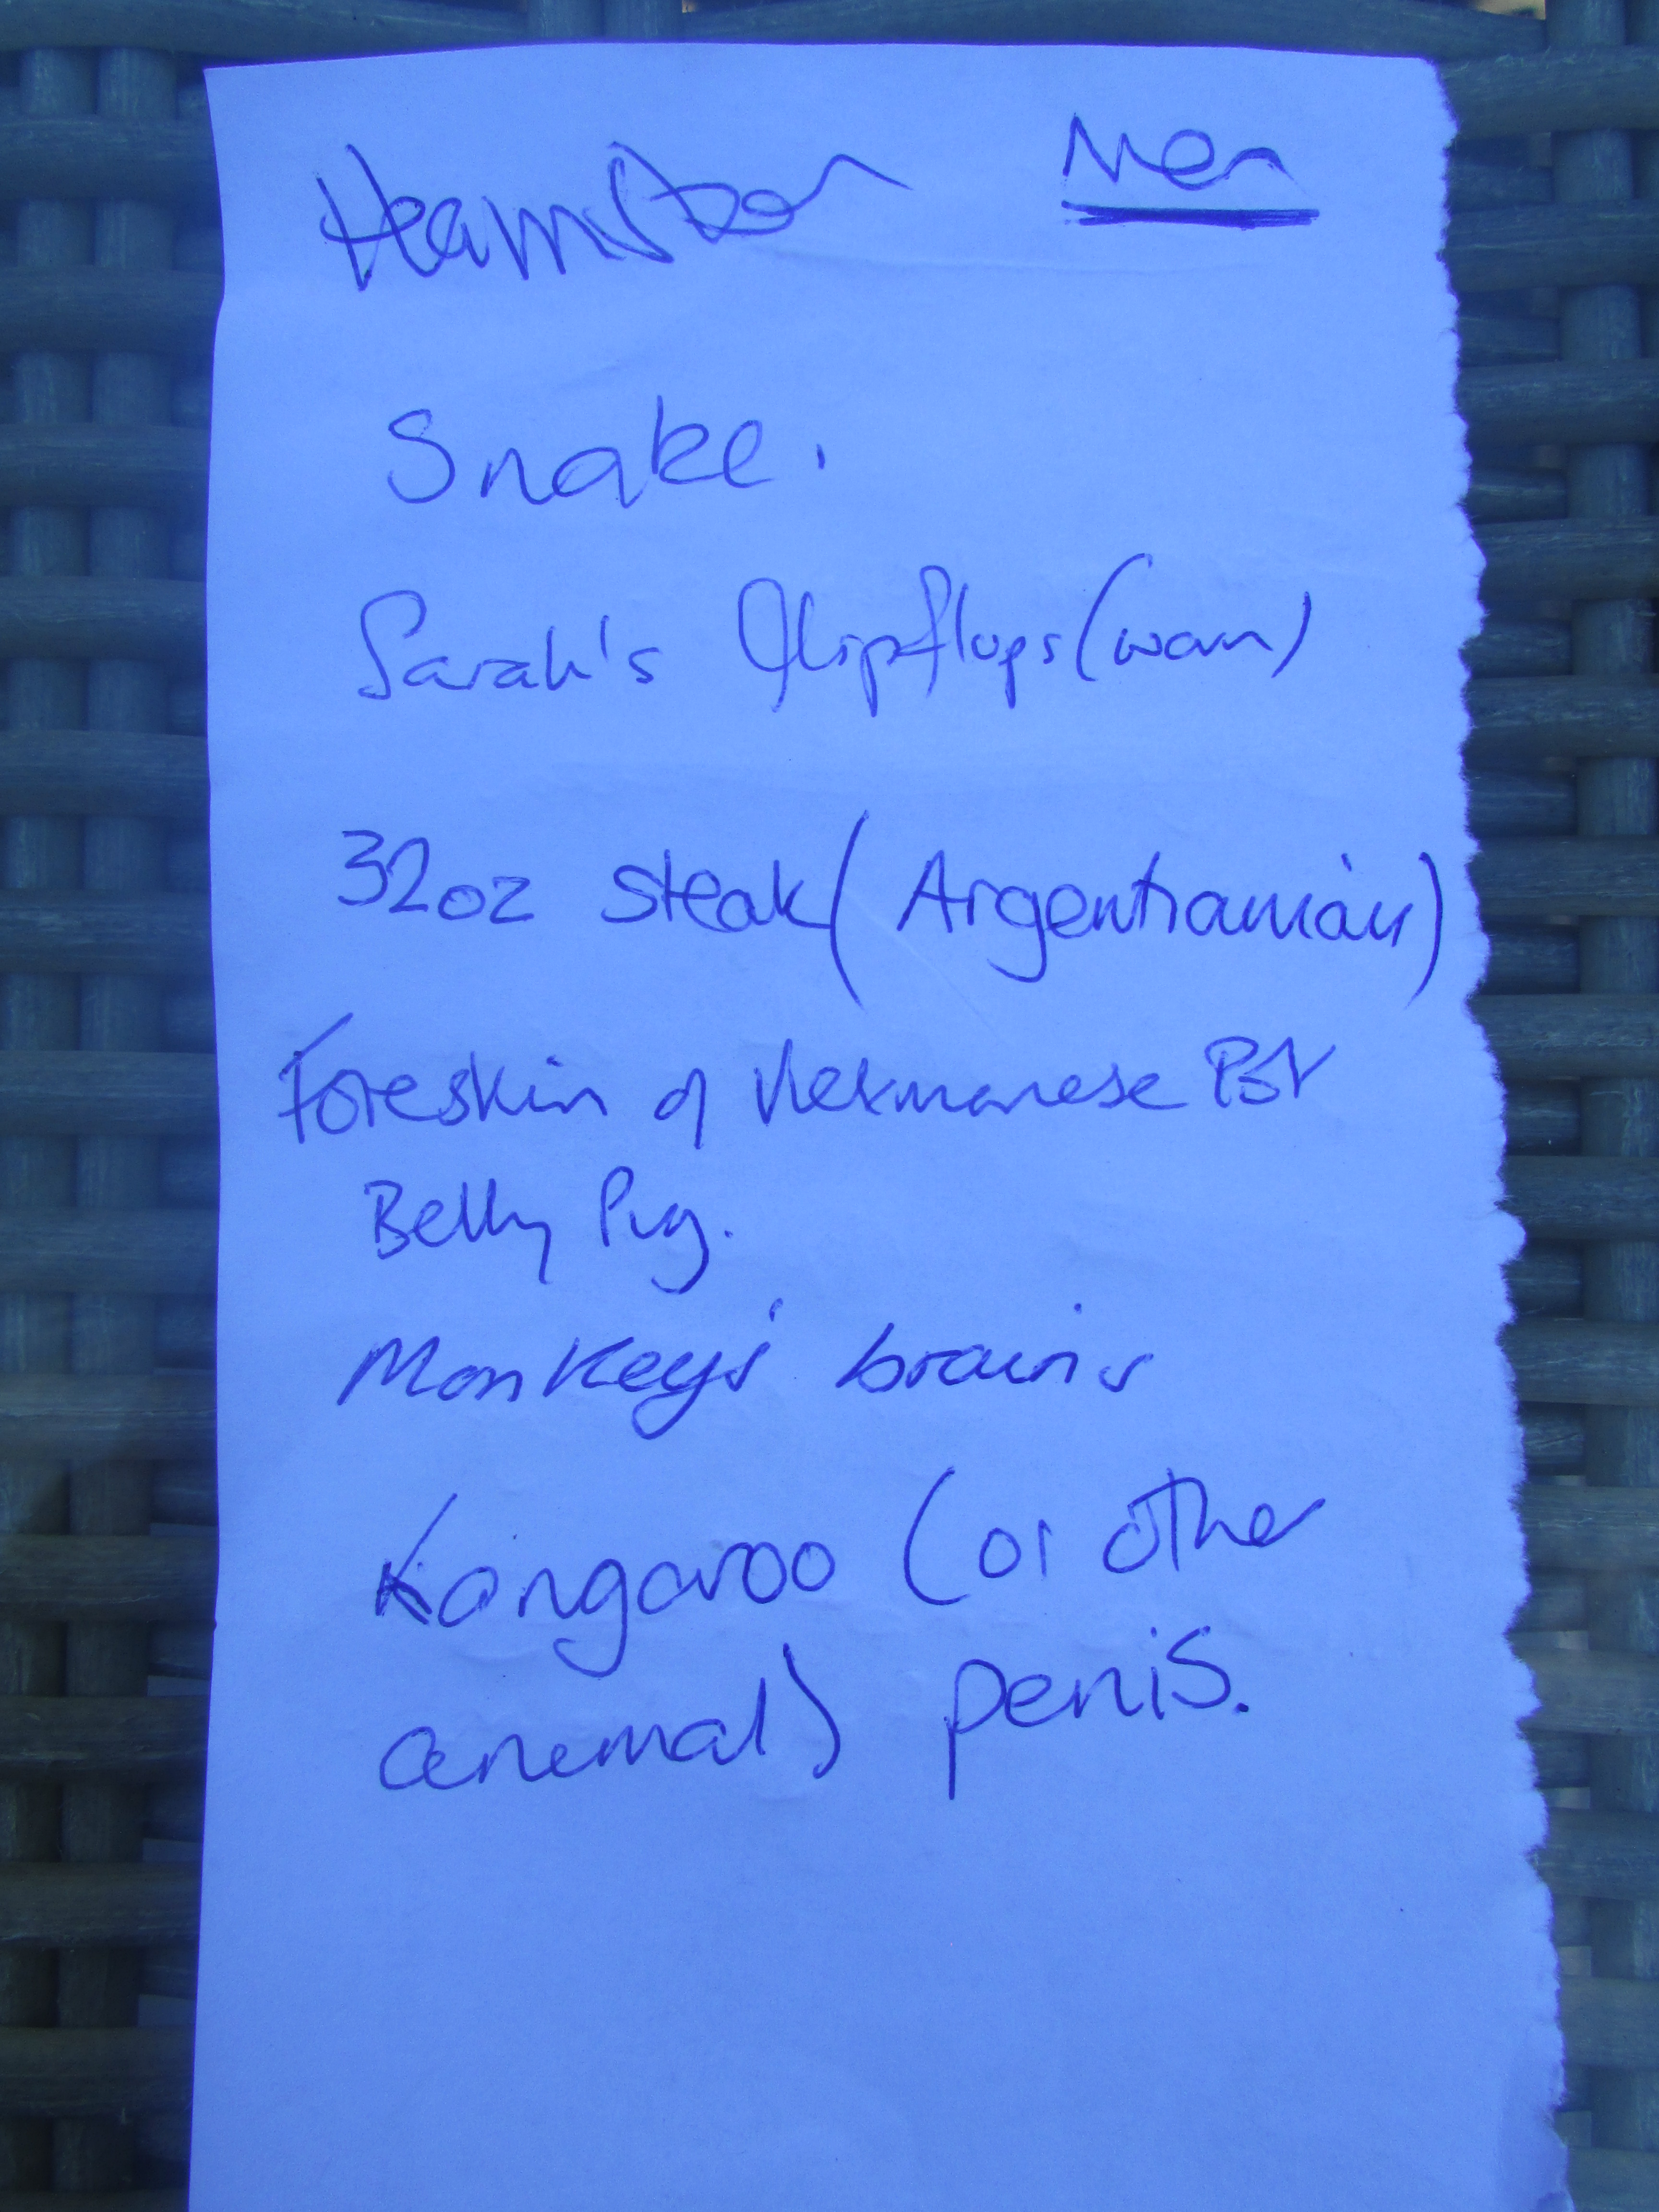 Men
Hamster
Snake.
Sarah's flipflops (worn)
32oz steak (Argentianian)
Foreskin of Vietnamese Pot
Belly Pig.
Monkey's brains
Kangaroo (or other
anemal) penis.